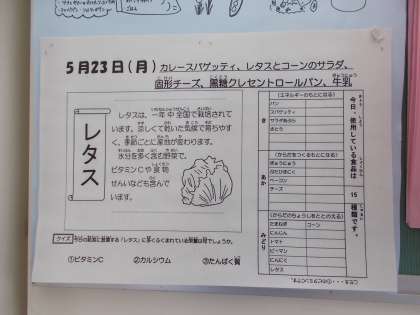 5月23日(月) カレースパゲッティ、レタスとコーンのサラダ、
固形チーズ、黒糖クレセントロールパン、牛乳
レタス
レタスは、一年中全国で栽培されて
います。涼しくて乾いた気候で育ちやす
く、季節ごとに産地が変わります。
水分を多く含む野菜で、
ビタミンCや食物
せんいなども含んで
います。
クイズ 今日の給食に登場する「レタス」に多くふくまれている栄養は何でしょうか。
①ビタミンC ②カルシウム ③たんぱく質
今日、使用している食品は 15 種類です。
き
(エネルギーのもとになる)
パン
スパゲッティ
サラダあぶら
さとう
あか
(からだをつくるもとになる)
ぎゅうにゅう
ベーコン
チーズ
みどり
(からだのちょうしをととのえる)
たまねぎ コーン
にんじん
トマト
ピーマン
にんにく
レタス